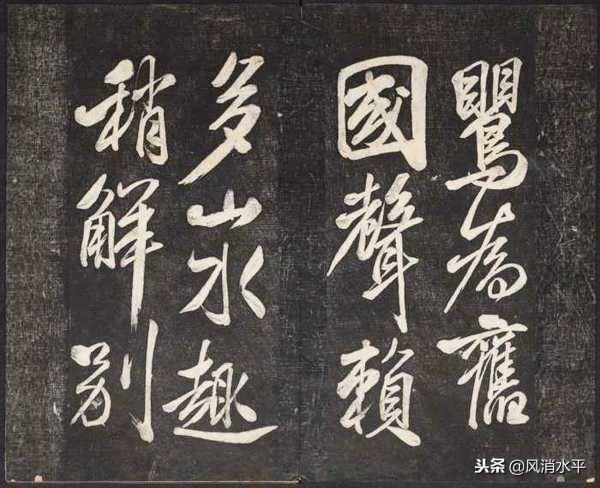 鸎為舊
國聲賴
多山水趣
稍解別
头条 @风消水平